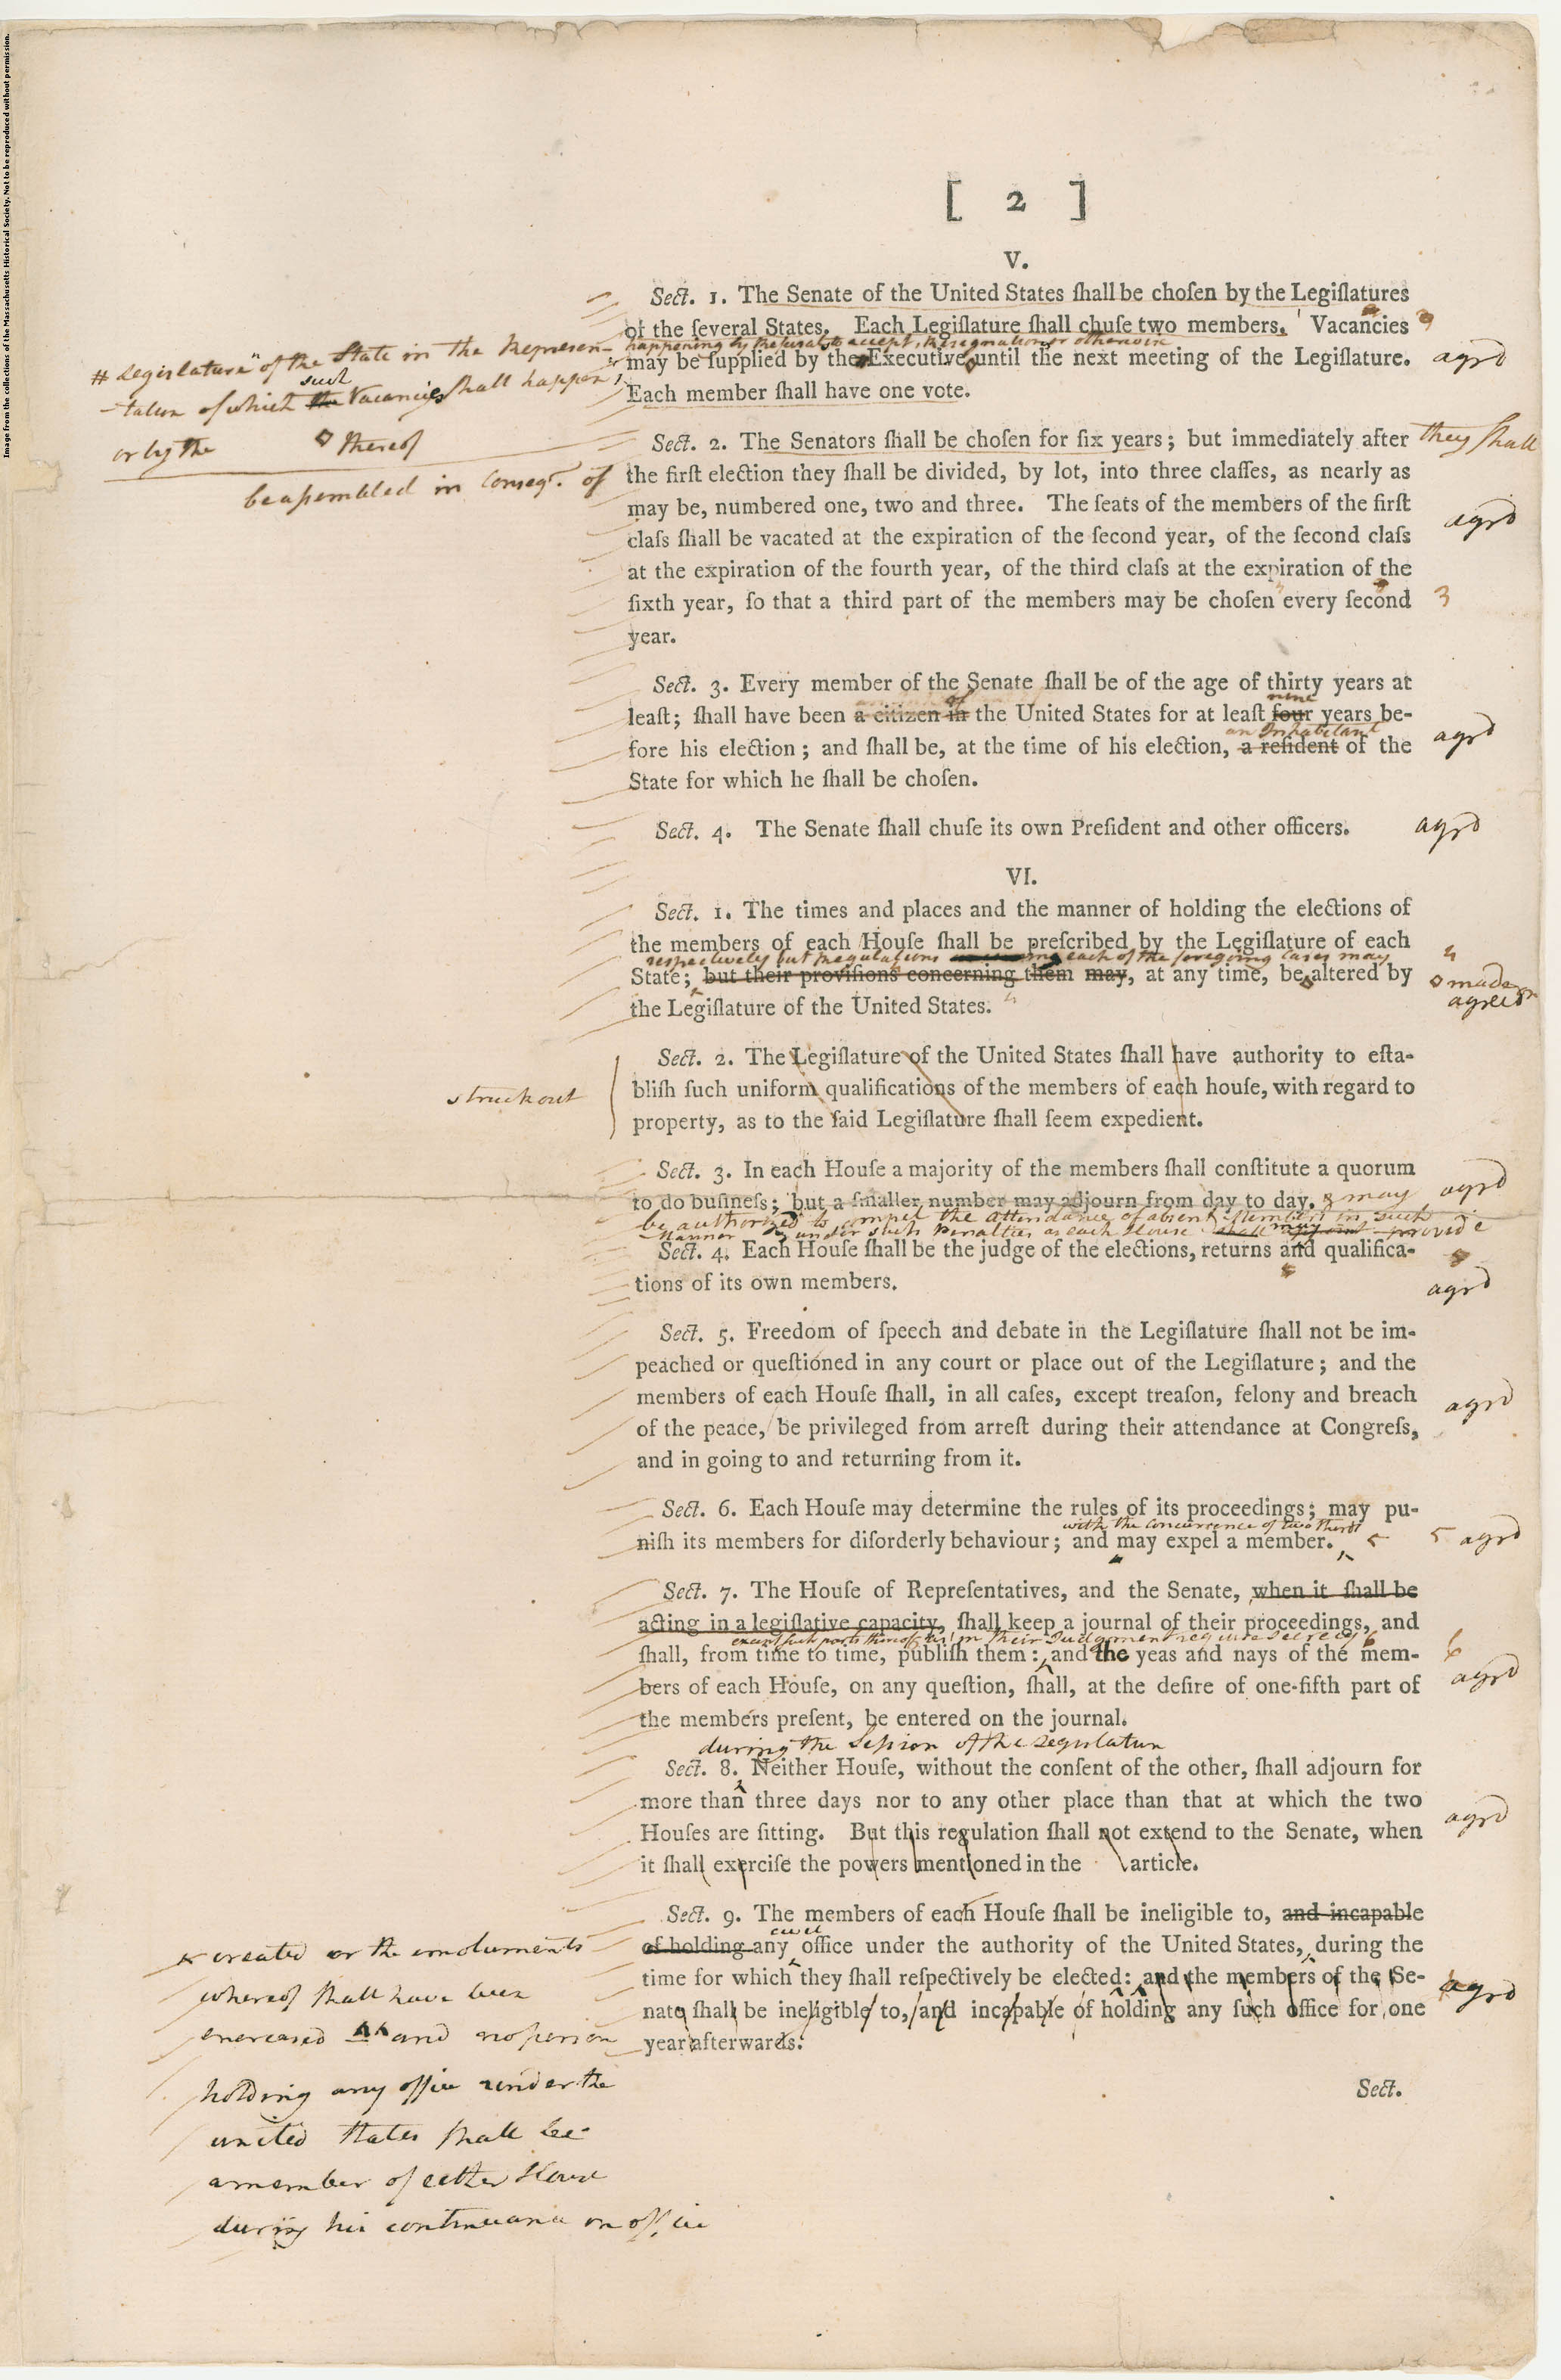 Image from the collections of the Massachusetts Historical Society. Not to be reproduced without permission.
[ 2 ]
V.
Sect. 1. The Senate of the United States ſhall be choſen by the Legiſlatures
of the ſeveral States. Each Legiſlature ſhall chuſe two members. Vacancies
happening by refusals to accept, resignations or otherwise
may be ſupplied by the Executive until the next meeting of the Legiſlature. agrd
Each member ſhall have one vote.
# Legislature" of the State in the Represen-
-tation of which the such Vacancies shall happen
or by the thereof
be assembled in conseqe. of
Sect. 2. The Senators ſhall be choſen for ſix years; but immediately after they shall
the firſt election they ſhall be divided, by lot, into three claſſes, as nearly as
may be, numbered one, two and three. The ſeats of the members of the firſt
claſs ſhall be vacated at the expiration of the ſecond year, of the ſecond claſs agrd
at the expiration of the fourth year, of the third claſs at the expiration of the
ſixth year, ſo that a third part of the members may be choſen every ſecond 3
year.
Sect. 3. Every member of the Senate ſhall be of the age of thirty years at
of nine
leaſt; ſhall have been a citizen in the United States for at leaſt four years be-
an Inhabitant
fore his election; and ſhall be, at the time of his election, a reſident of the agrd
State for which he ſhall be choſen.
Sect. 4. The Senate ſhall chuſe its own Preſident and other officers. agrd
VI.
Sect. 1. The times and places and the manner of holding the elections of
the members of each Houſe ſhall be preſcribed by the Legiſlature of each
respectively but regulations each of the foregoing cases may
State; but their proviſions concerning them may, at any time, be altered by made or
the Legiſlature of the United States. agreed
Sect. 2. The Legiſlature of the United States ſhall have authority to eſta-
struck out
bliſh ſuch uniform qualifications of the members of each houſe, with regard to
property, as to the ſaid Legiſlature ſhall ſeem expedient.
Sect. 3. In each Houſe a majority of the members ſhall conſtitute a quorum
to do buſineſs; but a ſmaller number may adjourn from day to day. & may agrd
be authorized to compel the attendance of absent Members in such
Manner & under such Penalties as each House shall may appoint provide
Sect. 4. Each Houſe ſhall be the judge of the elections, returns and qualifica-
tions of its own members. agrd
Sect. 5. Freedom of ſpeech and debate in the Legiſlature ſhall not be im-
peached or queſtioned in any court or place out of the Legiſlature; and the
members of each Houſe ſhall, in all caſes, except treaſon, felony and breach agrd
of the peace, be privileged from arreſt during their attendance at Congreſs,
and in going to and returning from it.
Sect. 6. Each Houſe may determine the rules of its proceedings; may pu-
with the concurrence of two thirds
niſh its members for diſorderly behaviour; and may expel a member. 5 5 agrd
Sect. 7. The Houſe of Repreſentatives, and the Senate, when it ſhall be
acting in a legiſlative capacity, ſhall keep a journal of their proceedings, and
except such parts thereof as in their Judgment require secrecy 6 6
ſhall, from time to time, publiſh them: and the yeas and nays of the mem- agrd
bers of each Houſe, on any queſtion, ſhall, at the deſire of one-fifth part of
the members preſent, be entered on the journal.
during the Session of the Legislature
Sect. 8. Neither Houſe, without the conſent of the other, ſhall adjourn for
more than three days nor to any other place than that at which the two
Houſes are ſitting. But this regulation ſhall not extend to the Senate, when agrd
it ſhall exerciſe the powers mentioned in the article.
Sect. 9. The members of each Houſe ſhall be ineligible to, and incapable
civil
of holding any office under the authority of the United States, during the
time for which they ſhall reſpectively be elected: and the members of the Se- agrd
nate ſhall be ineligible to, and incapable of holding any ſuch office for one
year afterwards.
Sect.
created or the emoluments
whereof shall have been
encreased and no person
holding any office under the
united States shall be
a member of either House
during his continuance in office